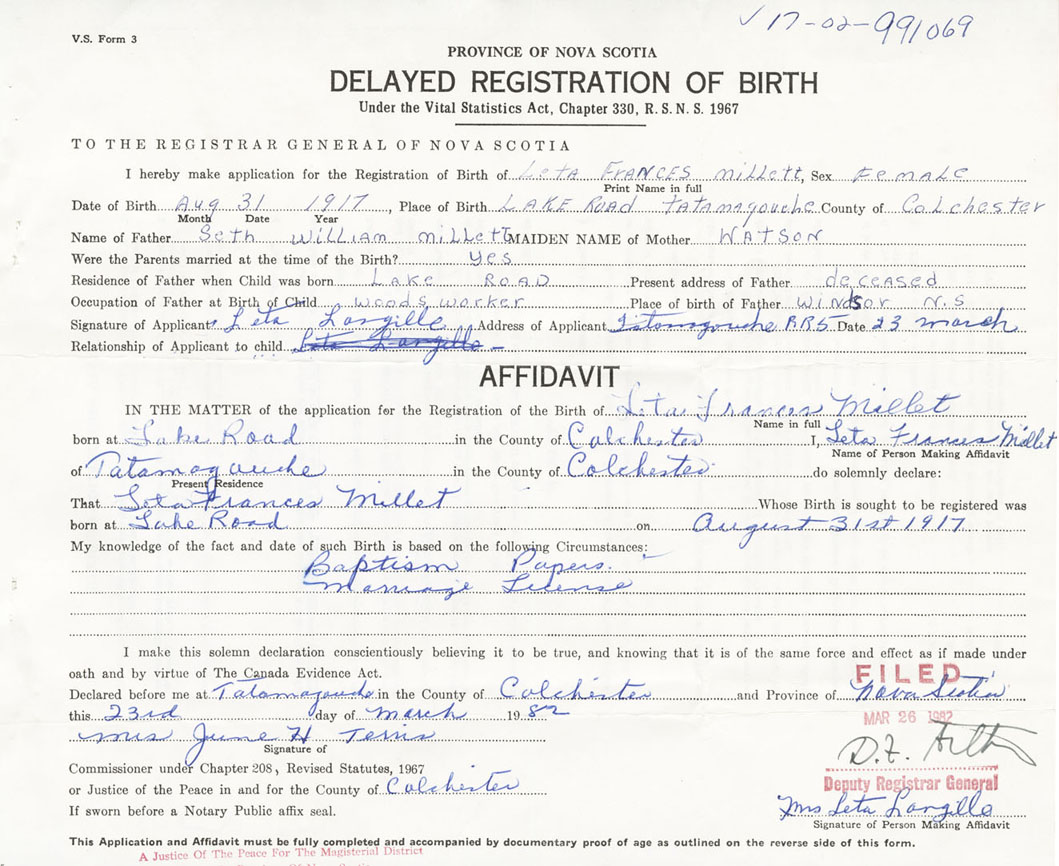 ✓ 17-02-991069
V.S. Form 3
PROVINCE OF NOVA SCOTIA
DELAYED REGISTRATION OF BIRTH
Under the Vital Statistics Act, Chapter 330, R.S.N.S. 1967
TO THE REGISTRAR GENERAL OF NOVA SCOTIA
I hereby make application for the Registration of Birth of Leta FRANCES millett, Sex Female
Print Name in full
Date of Birth Aug 31 1917, Place of Birth LAKE ROAD TATAmagouche County of Colchester
Month Date Year
Name of Father Seth William millett MAIDEN NAME of Mother WATSON
Were the Parents married at the time of the Birth? yes
Residence of Father when Child was born Lake ROAD Present address of Father deceased
Occupation of Father at Birth of Child woods worker Place of birth of Father WINdsor N.S
Signature of Applicant Leta Langille Address of Applicant Tatamagouche RR5 Date 23 march
Relationship of Applicant to child Leta Langille -
AFFIDAVIT
IN THE MATTER of the application for the Registration of the Birth of Leta Frances Millet
Name in full
born at Lake Road in the County of Colchester I, Leta Frances Millet
Name of Person Making Affidavit
of Tatamagouche in the County of Colchester do solemnly declare:
Present Residence
That Leta Frances Millet Whose Birth is sought to be registered was
born at Lake Road on August 31st 1917
My knowledge of the fact and date of such Birth is based on the following Circumstances:
Baptism Papers.
Marriage License
I make this solemn declaration conscientiously believing it to be true, and knowing that it is of the same force and effect as if made under
oath and by virtue of The Canada Evidence Act.
FILED
Declared before me at Tatamagouche in the County of Colchester and Province of Nova Scotia
this 23rd day of March 1982
MAR 26 1982
Mrs June H Terris
Signature of
D.F.
Commissioner under Chapter 208, Revised Statutes, 1967
Deputy Registrar General
or Justice of the Peace in and for the County of Colchester
Mrs Leta Langille
If sworn before a Notary Public affix seal.
Signature of Person Making Affidavit
This Application and Affidavit must be fully completed and accompanied by documentary proof of age as outlined on the reverse side of this form.
A Justice Of The Peace For The Magisterial District